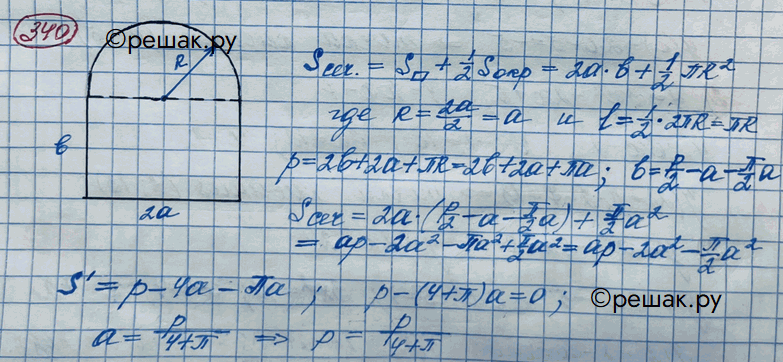 340
©решак.ру
R
в
2a
Sсеч. = S▭ + 1/2 Sокр = 2a·в + 1/2 πR²
где R = 2a/2 = a и l = 1/2·2πR = πR
p = 2в + 2a + πR = 2в + 2a + πa; в = p/2 - a - π/2 a
Sсеч = 2a·(p/2 - a - π/2 a) + π/2 a²
= ap - 2a² - πa² + π/2 a² = ap - 2a² - π/2 a²
S' = p - 4a - πa ; p - (4+π)a = 0 ;
©решак.ру
a = p/4+π ⇒ p = p/4+π